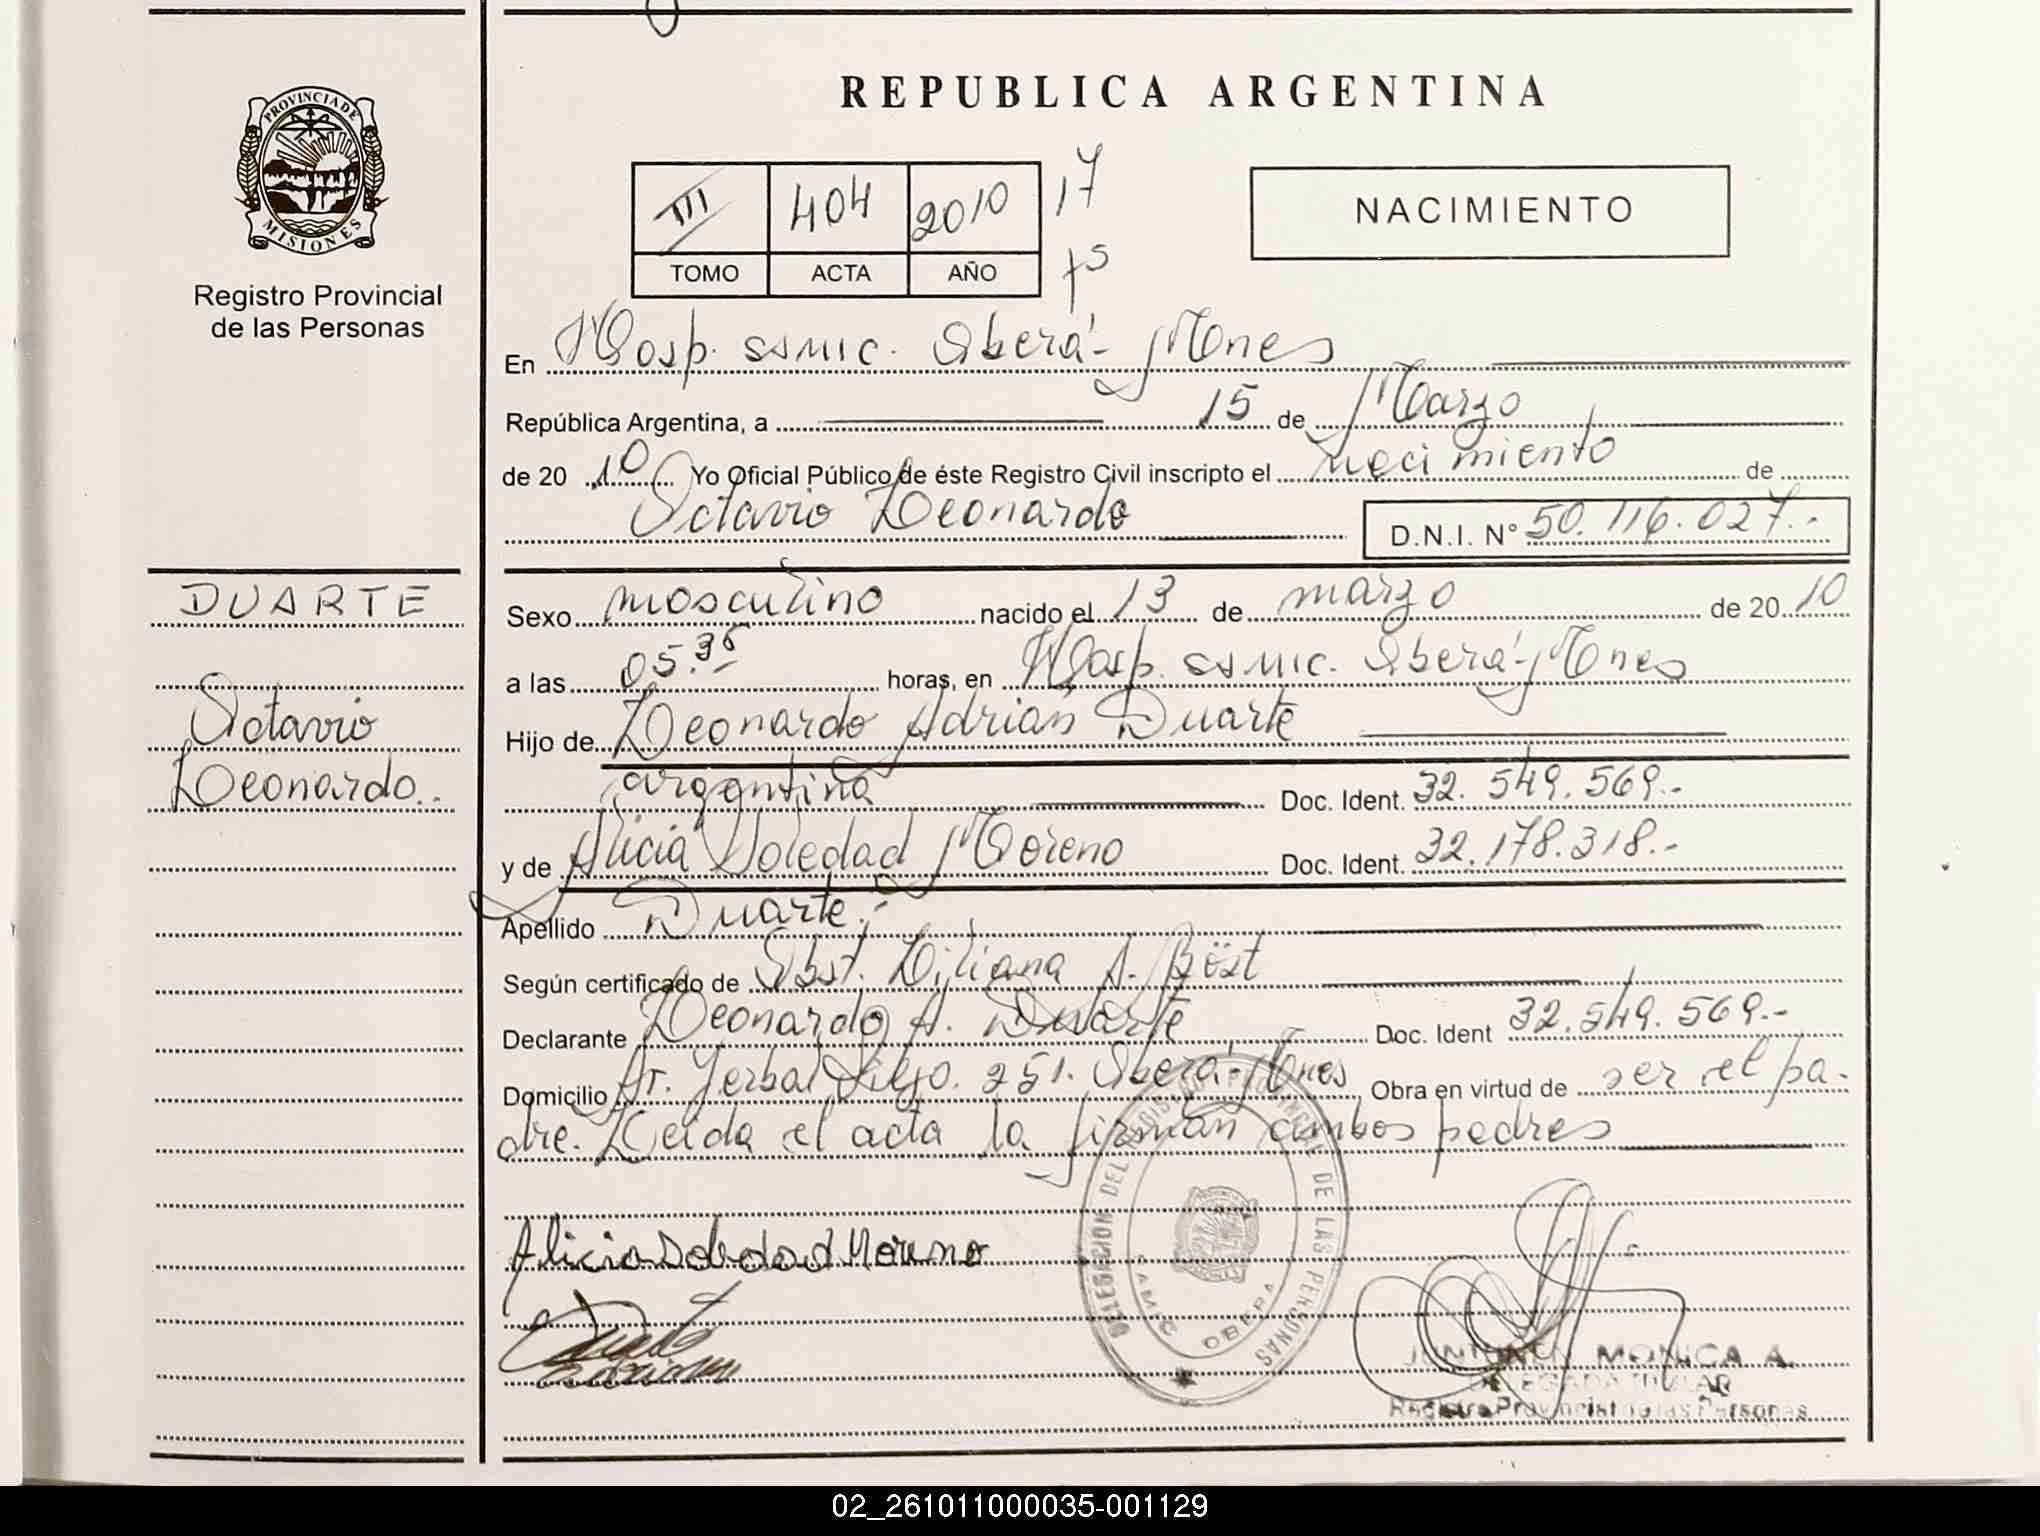 REPUBLICA ARGENTINA
PROVINCIA DE
MISIONES
Registro Provincial
de las Personas
III 404 2010 17
TOMO ACTA AÑO
NACIMIENTO
En Hosp. ssmic. Oberá- Mnes
República Argentina, a 15 de Marzo
de 20 10 Yo Oficial Público de éste Registro Civil inscripto el nacimiento de
Octavio Leonardo D.N.I. N° 50.116.027.-
DUARTE
Octavio
Leonardo.
Sexo masculino nacido el 13 de marzo de 20 10
a las 05.35 horas, en Hosp. ssmic. Oberá- Mnes
Hijo de Leonardo Adrian Duarte
argentina Doc. Ident. 32.549.569.-
y de Alicia Soledad Moreno Doc. Ident. 32.178.318.-
Apellido Duarte.-
Según certificado de Obst. Liliana A. Böst
Declarante Leonardo A. Duarte Doc. Ident 32.549.569.-
Domicilio Av. Yerbal Viejo. 251. Oberá- Mnes Obra en virtud de ser el pa-
dre. Leida el acta la firman ambos padres
DELEGACION DEL REGISTRO PROVINCIAL DE LAS PERSONAS
SAMIC OBERA
Alicia Soledad Moreno
Duarte
JUNTONEN MONICA A.
DELEGADA TITULAR
Registro Provincial de las Personas
02_261011000035-001129